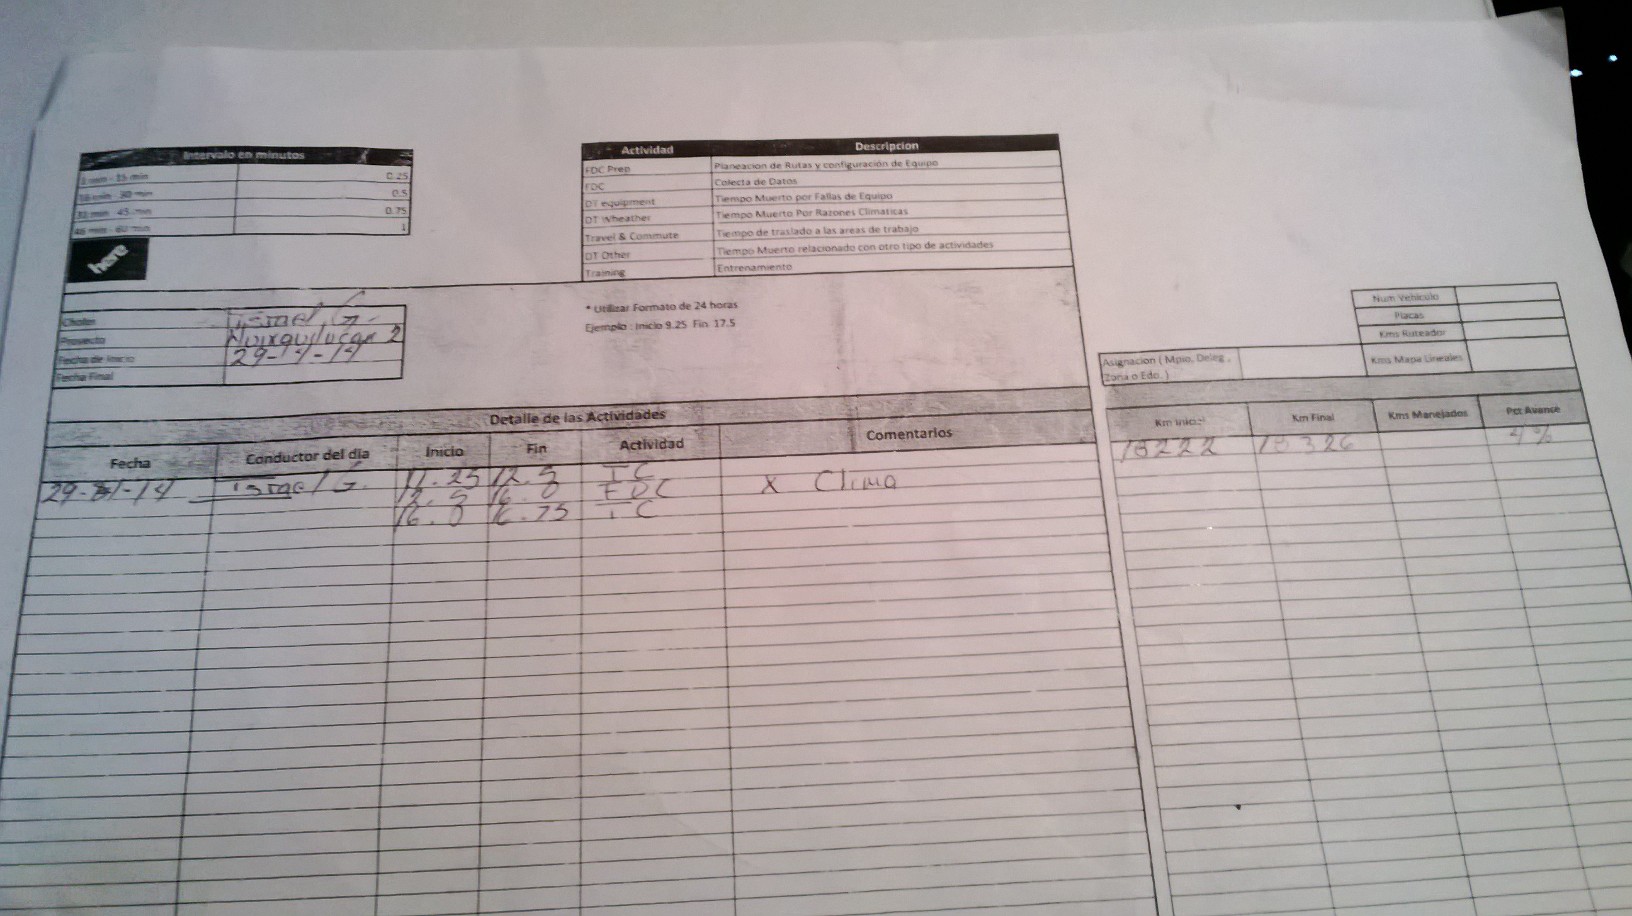 Intervalo en minutos
1 min - 15 min 0.25
16 min - 30 min 0.5
31 min - 45 min 0.75
46 min - 60 min 1
here
Actividad Descripcion
FDC Prep Planeacion de Rutas y configuración de Equipo
FDC Colecta de Datos
DT equipment Tiempo Muerto por Fallas de Equipo
DT Wheather Tiempo Muerto Por Razones Climaticas
Travel & Commute Tiempo de traslado a las areas de trabajo
DT Other Tiempo Muerto relacionado con otro tipo de actividades
Training Entrenamiento
Chofer Ismael G.
Proyecto Huixquilucan 2
Fecha de Inicio
Fecha Final
* Utilizar Formato de 24 horas
Ejemplo : Inicio 9.25 Fin 17.5
Num Vehiculo
Placas
Kms Ruteador
Kms Mapa Lineales
Asignacion ( Mpio, Deleg ,
Zona o Edo. )
Detalle de las Actividades
Fecha Conductor del día Inicio Fin Actividad Comentarios Km Inicial Km Final Kms Manejados Pct Avance
Ismael G. 11.25 12.5 TC 18222 18326 4%
12.5 16.0 FDC x Clima
16.0 16.75 TC